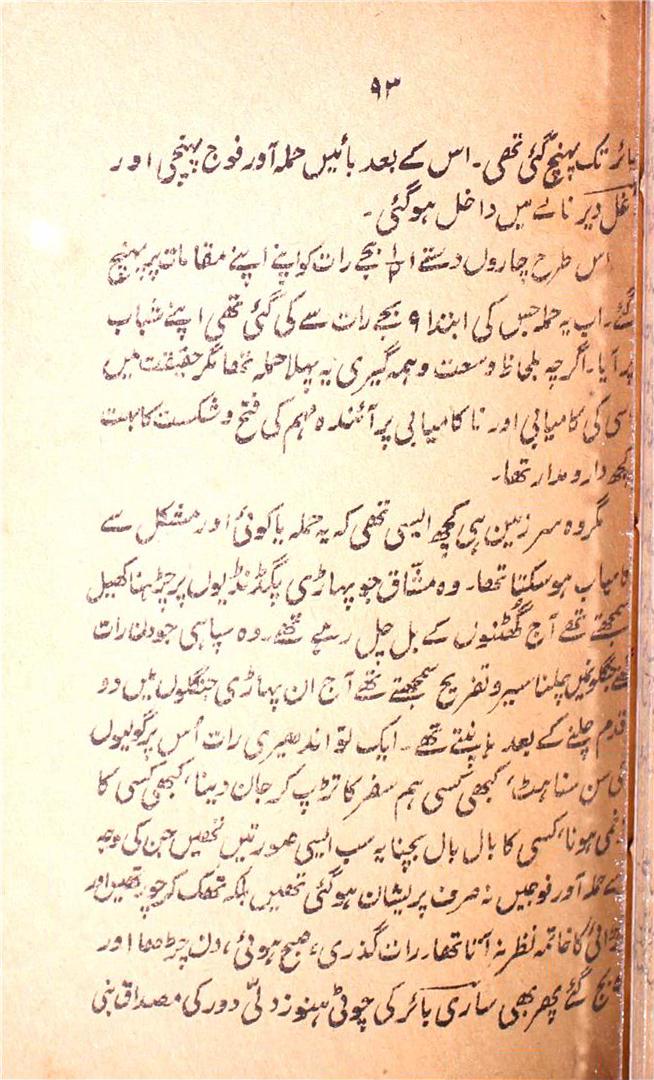 ۹۳
بائر تک پہنچ گئی تھی۔ اس کے بعد بائیں حملہ آور فوج پہنچی اور
دیر نالے میں داخل ہوگئی۔
اس طرح چاروں دستے ۱½ بجے رات کو اپنے اپنے مقامات پر پہنچ
گئے۔ اب یہ حملہ جس کی ابتدا ۹ بجے رات سے کی گئی تھی اپنے شباب
پر آیا۔ اگرچہ بلحاظ وسعت و ہمہ گیری یہ پہلا حملہ تھا مگر حقیقت میں
اسی کی کامیابی اور ناکامیابی پر آئندہ مہم کی فتح و شکست کا بہت
کچھ دارومدار تھا۔
مگر وہ سرزمین ہی کچھ ایسی تھی کہ یہ حملہ باکوئی اور مشکل سے
کامیاب ہو سکتا تھا۔ وہ مشّاق جو پہاڑی پگڈنڈیوں پر چڑہنا کھیل
سمجھتے تھے آج گُھٹنوں کے بل چل رہے تھے۔ وہ سپاہی جو دن رات
جنگلو نمیں چلنا سیر و تفریح سمجھتے تھے آج ان پہاڑی جنگلوں میں دو
قدم چلنے کے بعد ہانپتے تھے۔ ایک تو اندھیری رات اُس پر گولیوں
کی سن سناہٹ، کبھی کسی ہم سفر کا تڑپ کر جان دینا، کبھی کسی کا
زخمی ہونا، کسی کا بال بال بچنا یہ سب ایسی صورتیں تھیں جن کی وجہ
سے حملہ آور فوجیں نہ صرف پریشان ہوگئی تھیں بلکہ تھک کر چور تھیں اور
لڑائی کا خاتمہ نظر نہ آتا تھا۔ رات گذری، صبح ہوئی، دن چڑھا اور
بج گئے پھر بھی ساری بائر کی چوٹی ہنوز دلّی دور کی مصداق بنی